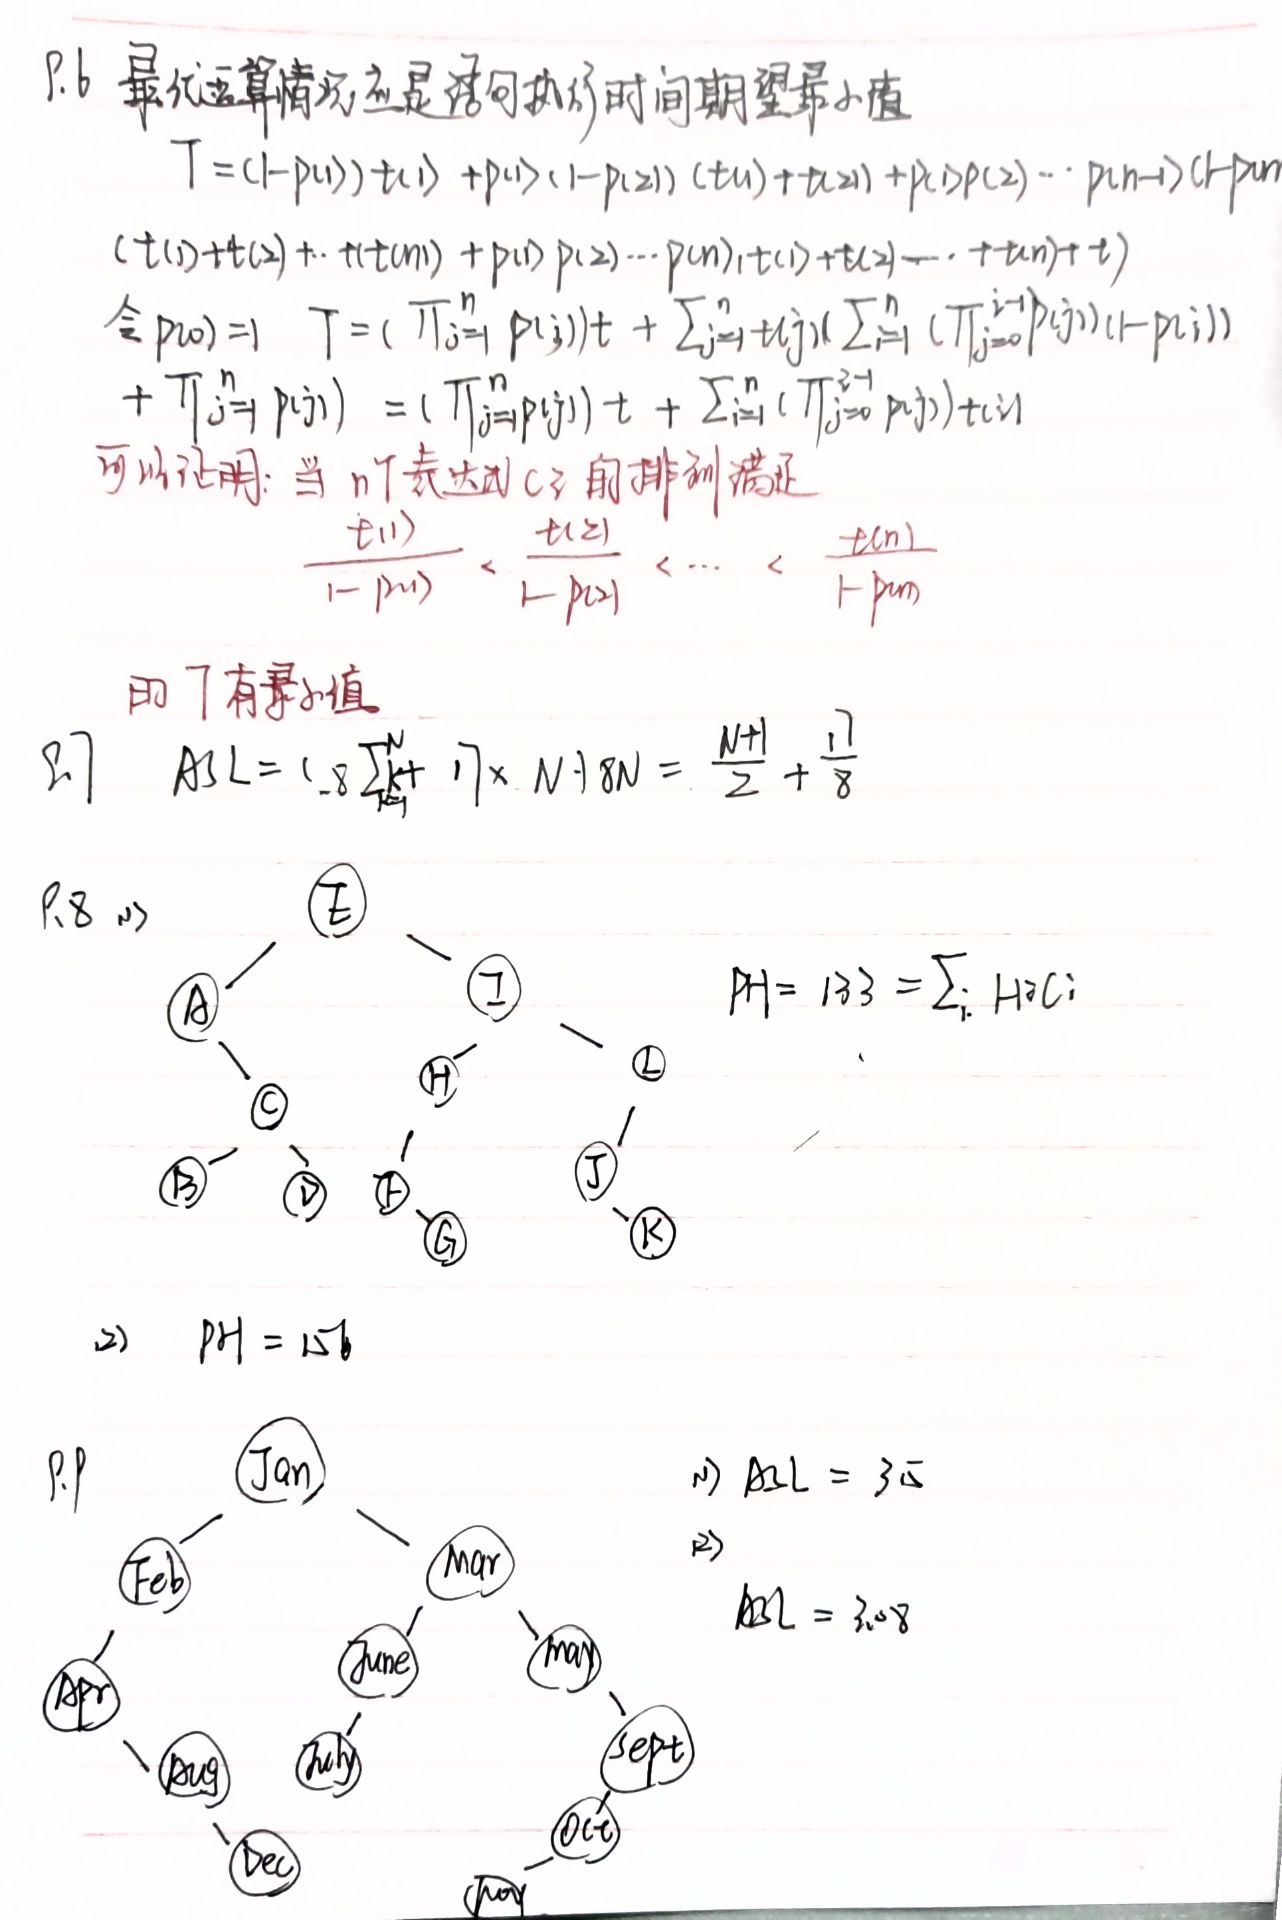 P.6 最优运算情况应是语句执行时间期望最小值
T=(1-p(1))t(1) +p(1)(1-p(2)) (t(1)+t(2)) +p(1)p(2)… p(n-1)(1-p(n
(t(1)+t(2)+…+t(n)) +p(1) p(2)…p(n),t(1)+t(2)—…+t(n)+t)
令p(0)=1 T=(∏_{j=1}^n p(j))t + ∑_{j=1}^n t(j)(∑_{i=1}^n (∏_{j=0}^{i-1} p(j))(1-p(i))
+∏_{j=1}^n p(j)) =(∏_{j=1}^n p(j)) t + ∑_{i=1}^n (∏_{j=0}^{i-1} p(j))t(i)
可以证明: 当 n个表达式 Ci 的排列满足
t(1)/(1-p(1)) < t(2)/(1-p(2)) < … < t(n)/(1-p(n))
时 T有最小值
P.7 ASL = (8∑_{k=1}^N k + 17×N)/8N = (N+1)/2 + 17/8
P.8 (1)
E
A I
C H L
B D F J
G K
PH = 133 = ∑_i HiCi
(2) PH = 156
P.9
Jan
Feb Mar
Apr June May
Aug July Sept
Dec Oct
Nov
(1) ASL = 3.5
(2)
ASL = 3.08